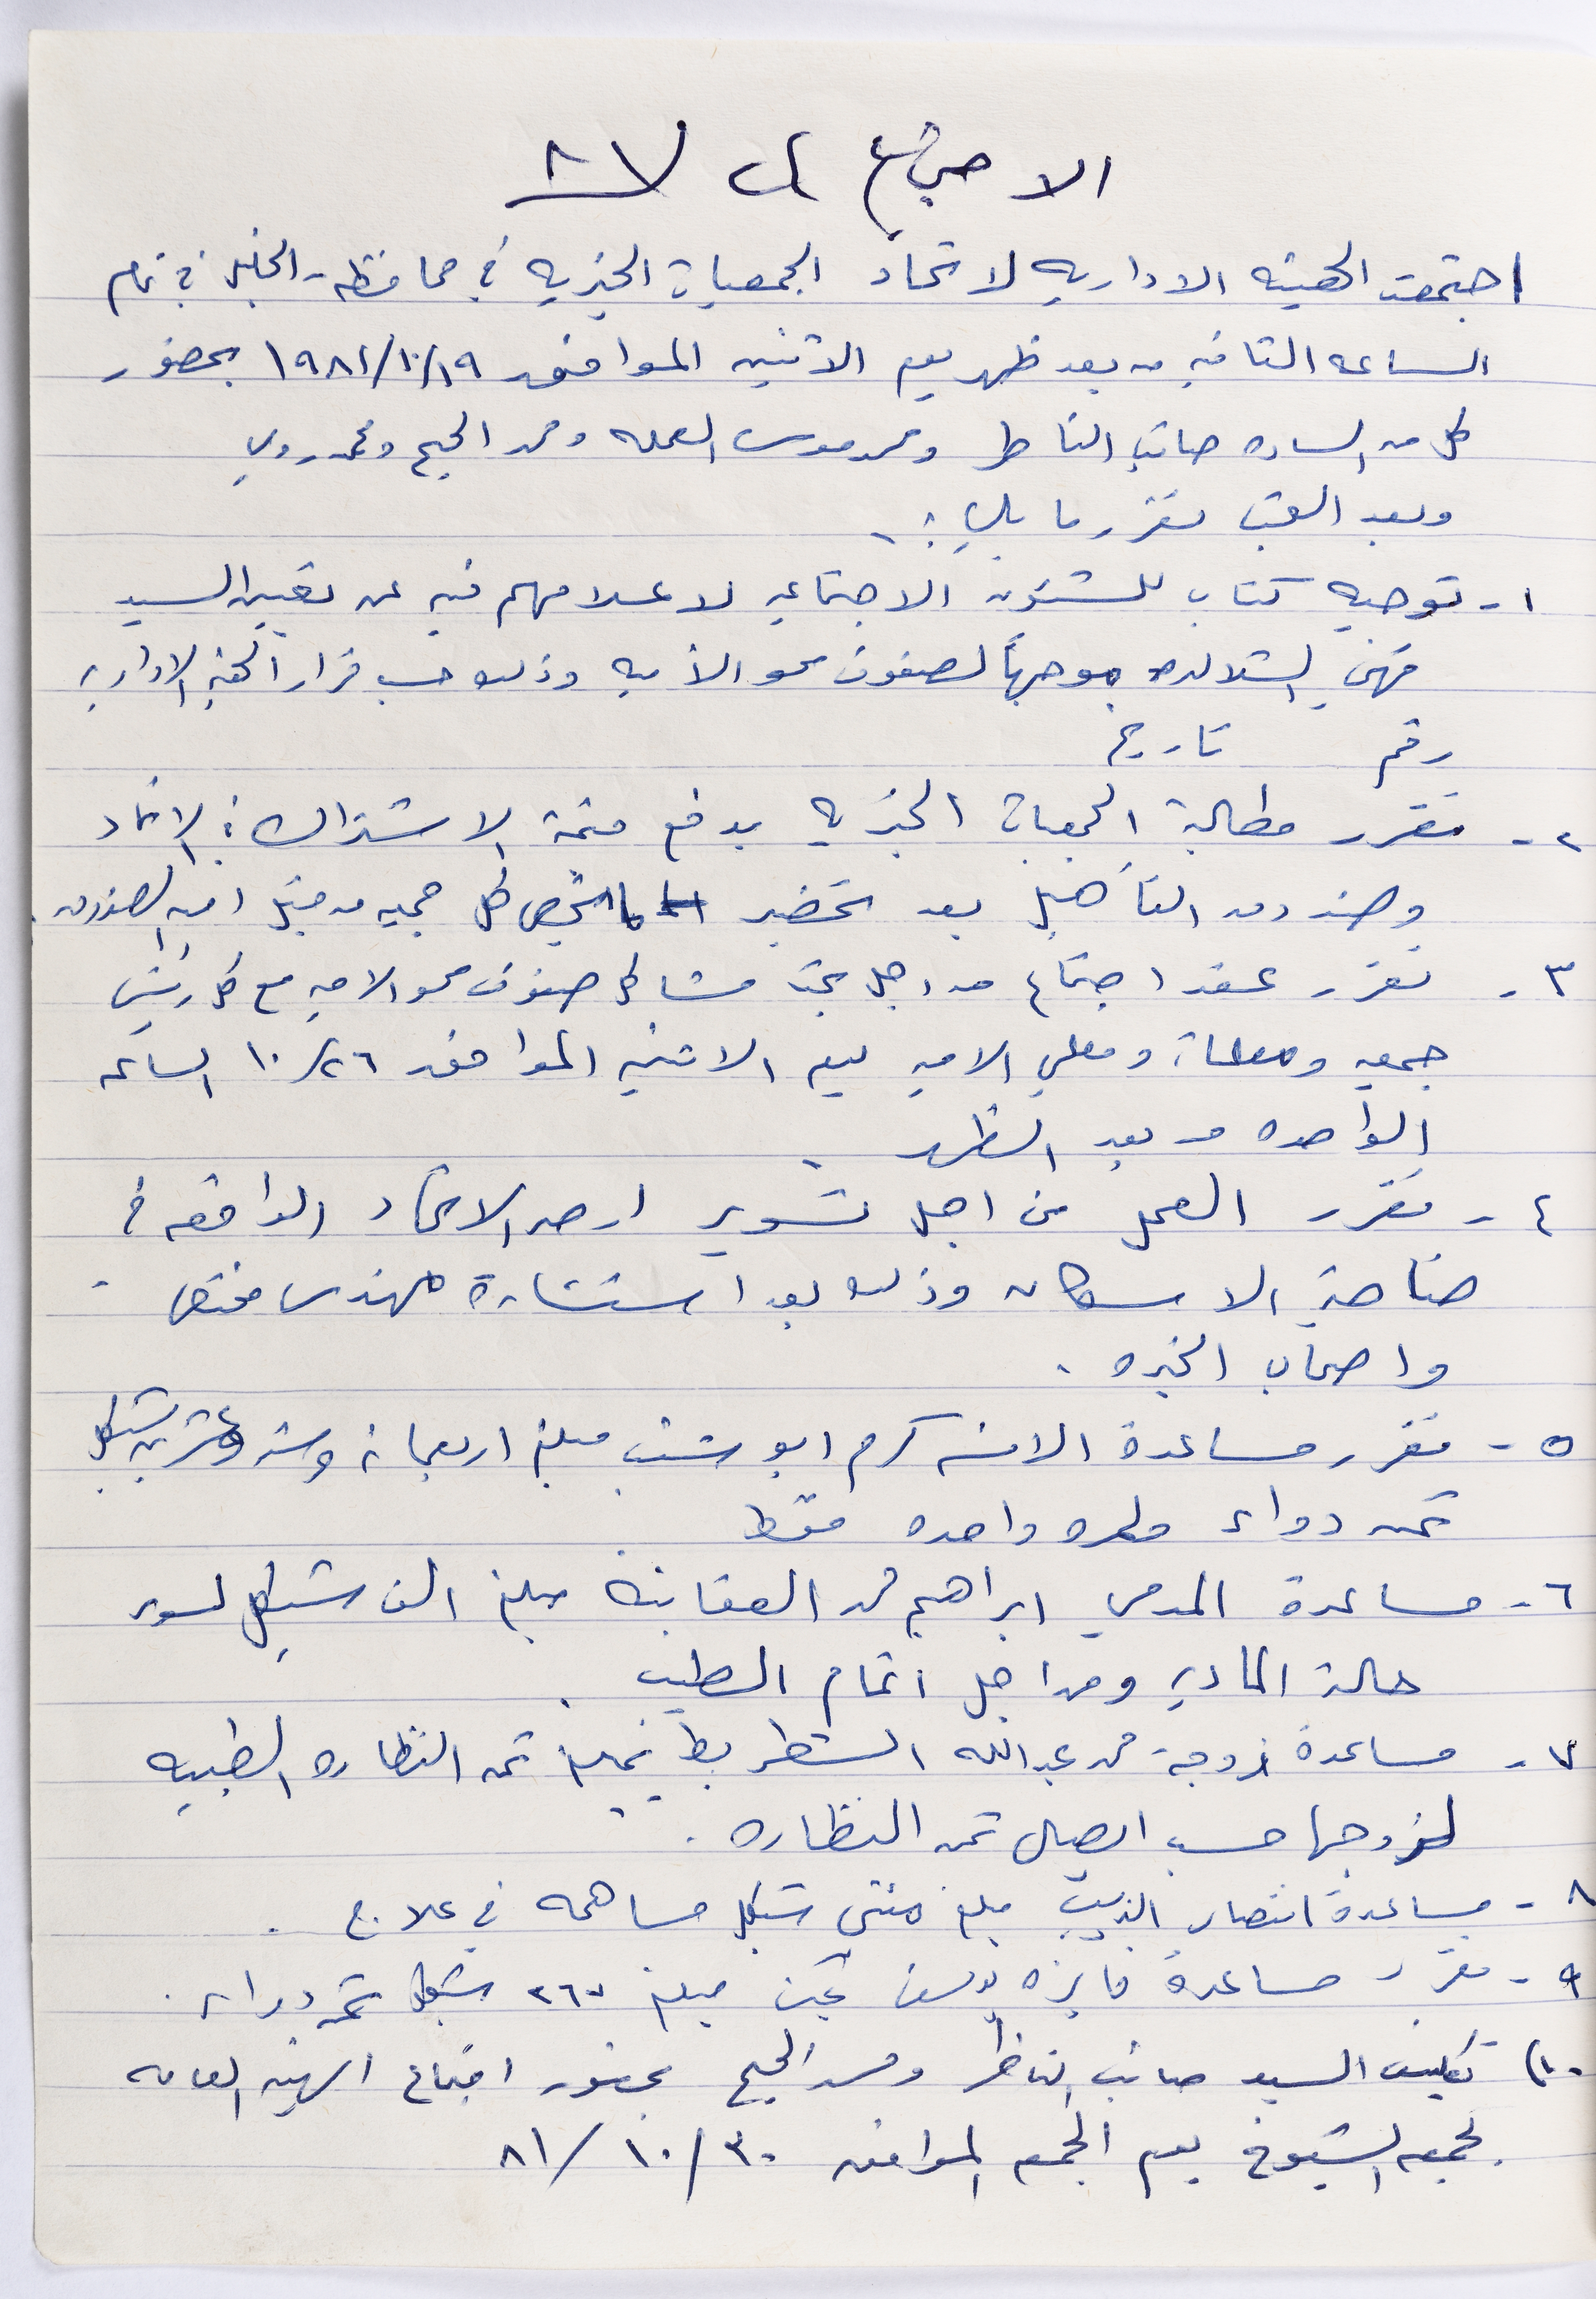 الاجتماع ال ٨٧
اجتمعت الهيئه الاداريه لاتحاد الجمعيات الخيريه في محافظه الخليل في تمام
الساعه الثانيه من بعد ظهر يوم الاثنين الموافق ١٩٨١/١٠/١٩ بحضور
كل من الساده صائب الناظر ومحمد موسى العمله ومحمد الحيح ومحمد روبي
وبعد البحث تقرر ما يلي :ـ
١ - توجيه كتاب للشئون الاجتماعيه لاعلامهم فيه عن تعيين السيد
فهمي الشلالده موجهاً لصفوف محو الأميه وذلك حسب قرار الهيئه الاداريه
رقم تاريخ
٢ - تقرر مطالبة الجمعيات الخيريه بدفع قيمة الاشتراك في الاتحاد
وصندوق التأهيل بعد تحضير ما يخص كل جمعيه من قبل امين الصندوق .
٣ - تقرر عقد اجتماع من اجل بحث مشاكل صفوف محو الاميه مع كل رئيس
جمعيه ومعلمات ومعلمي الاميه يوم الاثنين الموافق ١٠/٢٦ الساعه
الواحده من بعد الظهر .
٤ - تقرر العمل من اجل تسوير ارض الاتحاد الواقعه في
ضاحية الاسكان وذلك بعد استشارة مهندس مختص .
واصحاب الخبره .
٥ - تقرر مساعدة الانسه كرم ابو شنب مبلغ اربعمائه وسته وعشرين شيكل
ثمن دواء ولمره واحده فقط .
٦ - مساعدة المدعي ابراهيم محمد العقابنه مبلغ الف شيكل لسوء
حالته الماديه ومن اجل اتمام الطبيب .
٧ - مساعدة زوجة محمد عبدالله الشطريط بمبلغ ثمن النظاره الطبيه
لزوجها حسب ايصال ثمن النظاره .
٨ - مساعدة انتصار الذيب مبلغ مئتي شيكل مساهمه في علاج .
٩ - تقرر مساعدة فايزه يوسف مبلغ ٢٦٧ شيكل ثمن دواء .
١٠) تكليف السيد صائب الناظر ومحمد الحيح بحضور اجتماع الهيئه العامه
لجمعيه الشيوخ يوم الجمعه الموافق ٨١/١٠/٣٠